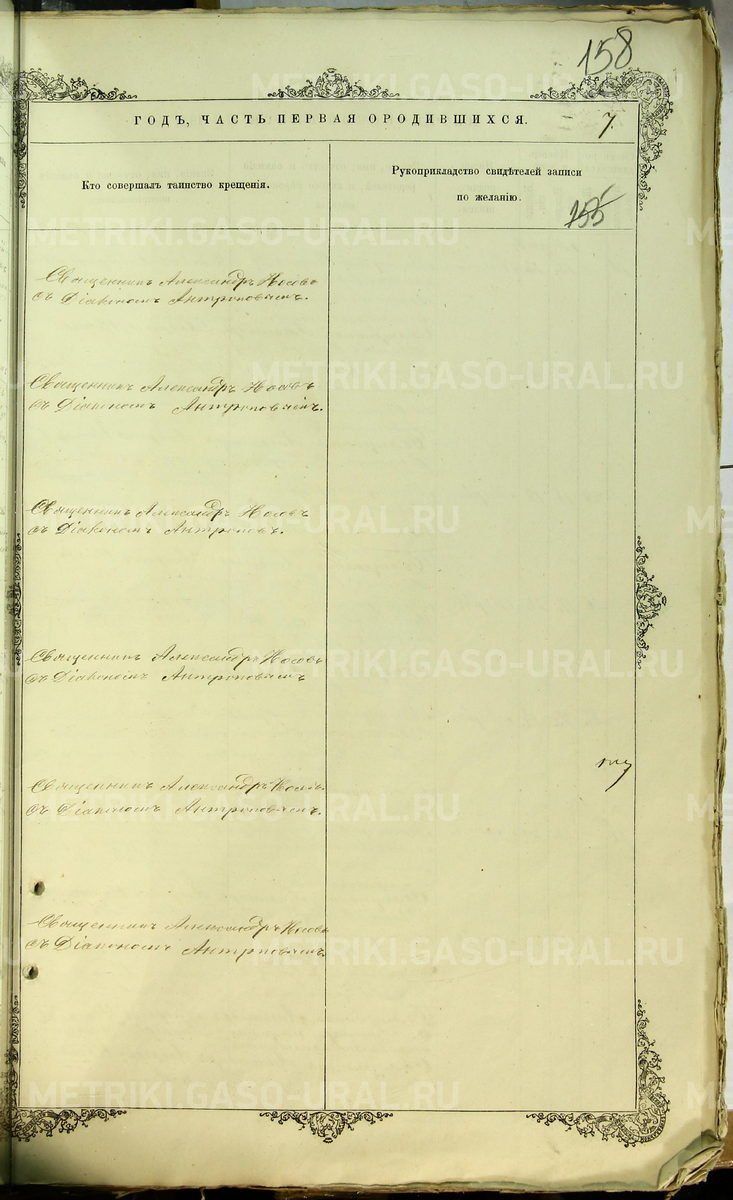 158
ГОДЪ, ЧАСТЬ ПЕРВАЯ О РОДИВШИХСЯ.
7.
Кто совершалъ таинство крещенія.
Рукоприкладство свидѣтелей записи
по желанію.
155
Священникъ Александръ Носовъ
съ Діакономъ Антроповымъ.
Священникъ Александръ Носовъ
съ Діакономъ Антроповымъ.
Священникъ Александръ Носовъ
съ Діакономъ Антроповъ.
Священникъ Александръ Носовъ
съ Діакономъ Антроповымъ
Священникъ Александръ Носовъ.
съ Діакономъ Антроповымъ.
Священникъ Александръ Носовъ
съ Діакономъ Антроповымъ.
METRIKI.GASO-URAL.RU